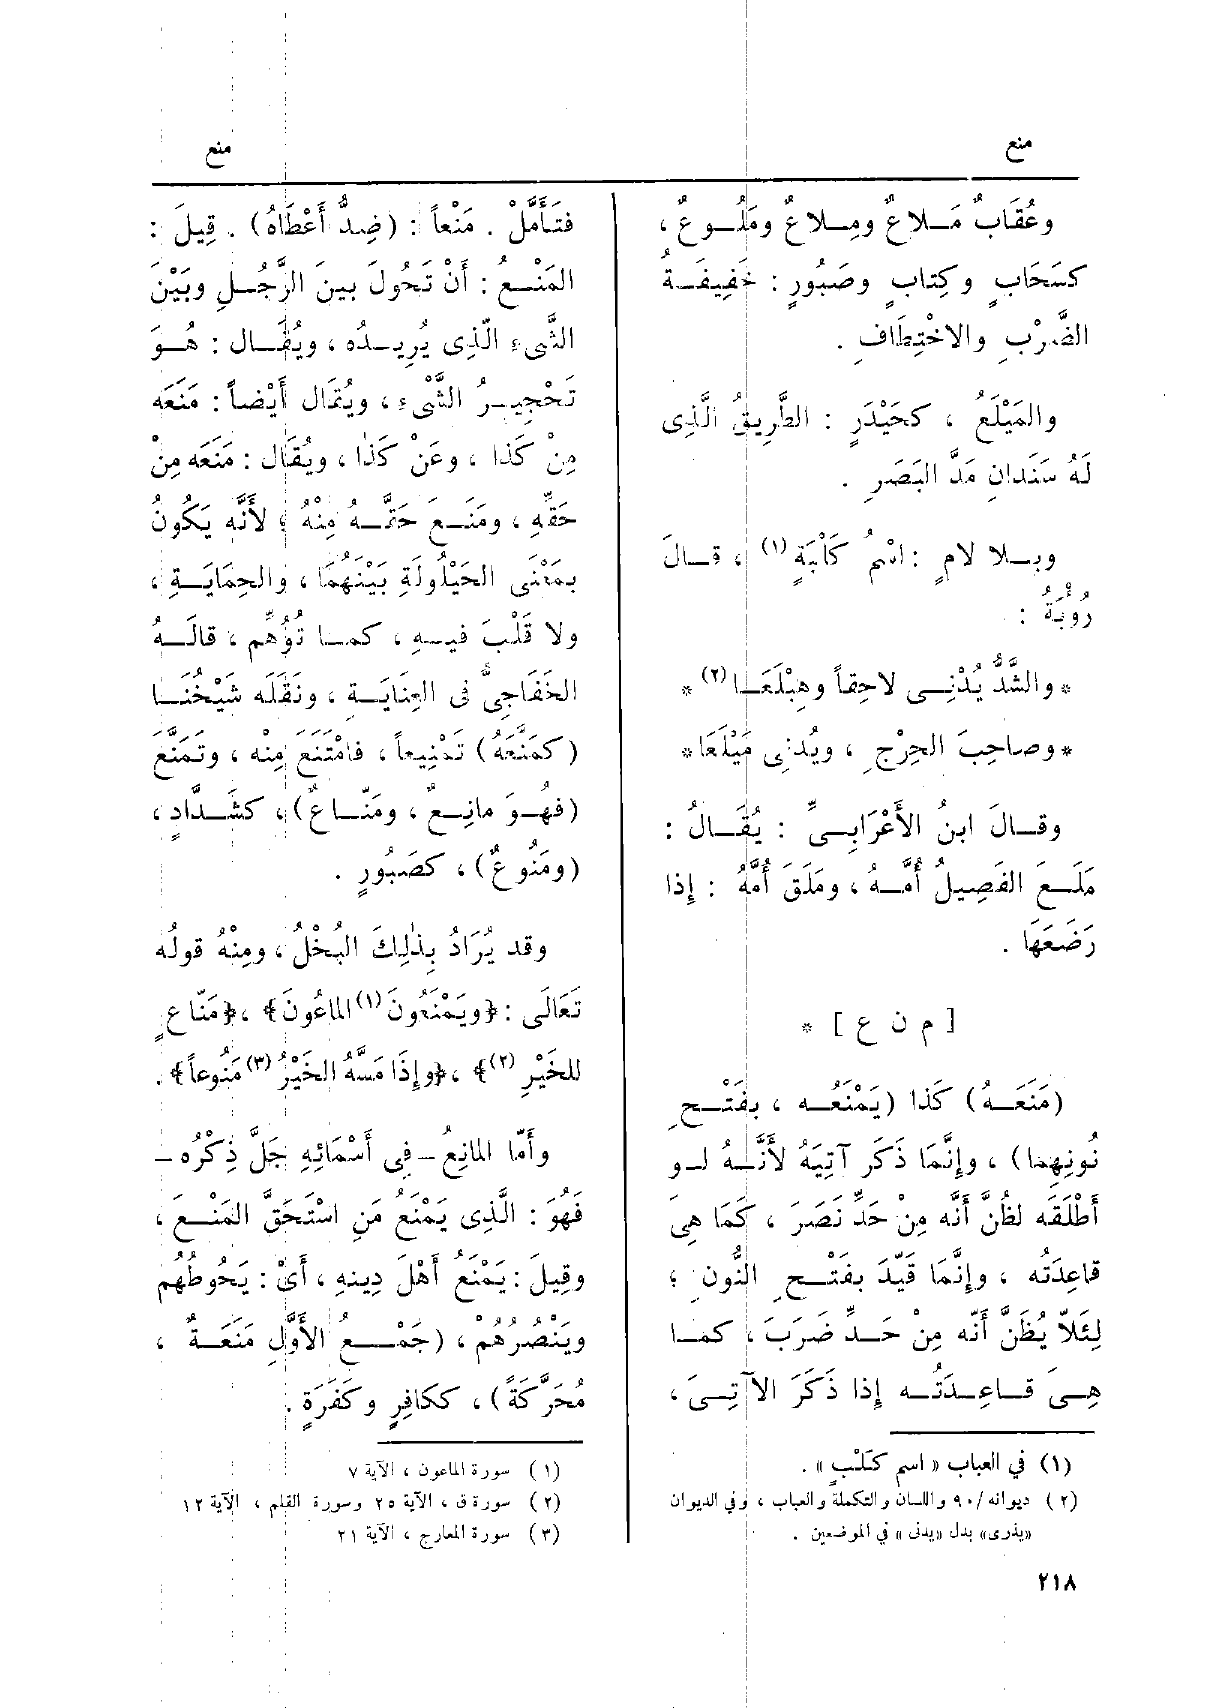 منع
منع
وعُقَابٌ مَــلاعٌ ومِــلاعٌ ومَلُــوعٌ ،
كسَحَابٍ وكِتابٍ وصَبُورٍ : خَفِيفَــةُ
الضَّرْبِ والاخْتِطَافِ .
والمَيْلَعُ ، كحَيْدَرٍ : الطَّرِيقُ الَّذِى
لَهُ سَنَدانِ مَدَّ البَصَرِ .
وبــلا لامٍ : اسْمُ كَلْبَةٍ (١) ، قــالَ
رُؤْبَةُ :
* والشَّدُّ يُدْنِــى لاحِقاً وهِبْلَعَــا (٢) *
* وصاحِبَ الحِرْجِ ، ويُدنِى مَيْلَعَا *
وقــالَ ابنُ الأَعْرَابِــىِّ : يُقَــالُ :
مَلَــعَ الفَصِيلُ أُمَّــهُ ، ومَلَقَ أُمَّهُ : إِذا
رَضَعَهَا .
[ م ن ع ] *
(مَنَعَــهُ) كَذا (يَمْنَعُــه ، بفَتْــحِ
نُونِهِما) ، وإِنَّمَا ذَكَر آتِيَهُ لأَنَّــهُ لــو
أَطْلَقَه لظُنَّ أَنَّه مِنْ حَدِّ نَصَرَ ، كَمَا هِىَ
قاعِدَتُه ، وإِنَّمَا قَيَّدَ بفَتْــحِ النُّونِ ؛
لِئَلاّ يُظَنَّ أَنَّه مِنْ حَــدِّ ضَرَبَ ، كمــا
هِــىَ قــاعِــدَتُــه إِذا ذَكَرَ الآتِــىَ ،
(١) في العباب « اسم كَلْبٍ » .
(٢) ديوانه /٩٠ واللسان والتكملة والعباب ، وفي الديوان
«يذرى» بدل «يدنى» في الموضعين .
فتَأَمَّلْ . مَنْعاً : (ضِدُّ أَعْطَاهُ) . قِيلَ :
المَنْــعُ : أَنْ تَحُولَ بينَ الرَّجُــلِ وبَيْنَ
الشَّىءِ الّذِى يُرِيــدُه ، ويُقَــال : هُــوَ
تَحْجِيــرُ الشَّىْءِ ، ويُقَال أَيْضاً : مَنَعَه
مِنْ كَذا ، وعَنْ كَذَا ، ويُقَال : مَنَعَه مِنْ
حَقِّهِ ، ومَنَــعَ حَقَّــهُ مِنْهُ ؛ لأَنَّه يَكُونُ
بمَعْنَى الحَيْلُولَةِ بَيْنَهُمَا ، والحِمَايَــةِ ،
ولا قَلْبَ فيــهِ ، كمــا تُوُهِّم ، قالَــهُ
الخَفَاجِىُّ فى العِنَايَــة ، ونَقَلَه شَيْخُنَــا
(كمَنَّعَهُ) تَمْنِيعاً ، فامْتَنَع مِنْه ، وتَمَنَّعَ
(فهُــوَ مانِــعٌ ، ومَنّــاعٌ) ، كشَــدَّادٍ ،
(ومَنُوعٌ) ، كصَبُورٍ .
وقد يُرَادُ بِذٰلِكَ البُخْلُ ، ومِنْهُ قولُه
تَعَالَى : ﴿ويَمْنَعُونَ (١) الماعُونَ﴾ ، ﴿مَنّاعٍ
للخَيْرِ (٢)﴾ ، ﴿وإِذَا مَسَّهُ الخَيْرُ (٣) مَنُوعاً﴾ .
وأَمّا المانِعُ – فِى أَسْمَائِهِ جَلَّ ذِكْرُه –
فَهُوَ : الَّذِى يَمْنَعُ مَنِ اسْتَحَقَّ المَنْــعَ ،
وقِيلَ : يَمْنَعُ أَهْلَ دِينهِ ، أَىْ : يَحُوطُهُم
ويَنْصُرُهُمْ ، (جَمْــعُ الأَوَّلِ مَنَعَــةٌ ،
مُحَرَّكَةً) ، ككافِرٍ وكَفَرَةٍ .
(١) سورة الماعون ، الآية ٧
(٢) سورة ق ، الآية ٢٥ وسورة القلم ، الآية ١٢
(٣) سورة المعارج ، الآية ٢١
٢١٨